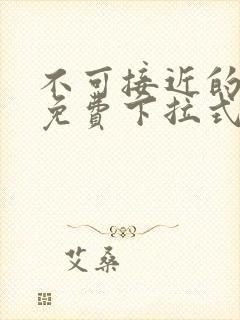 不可接近的
免费下拉式
艾桑